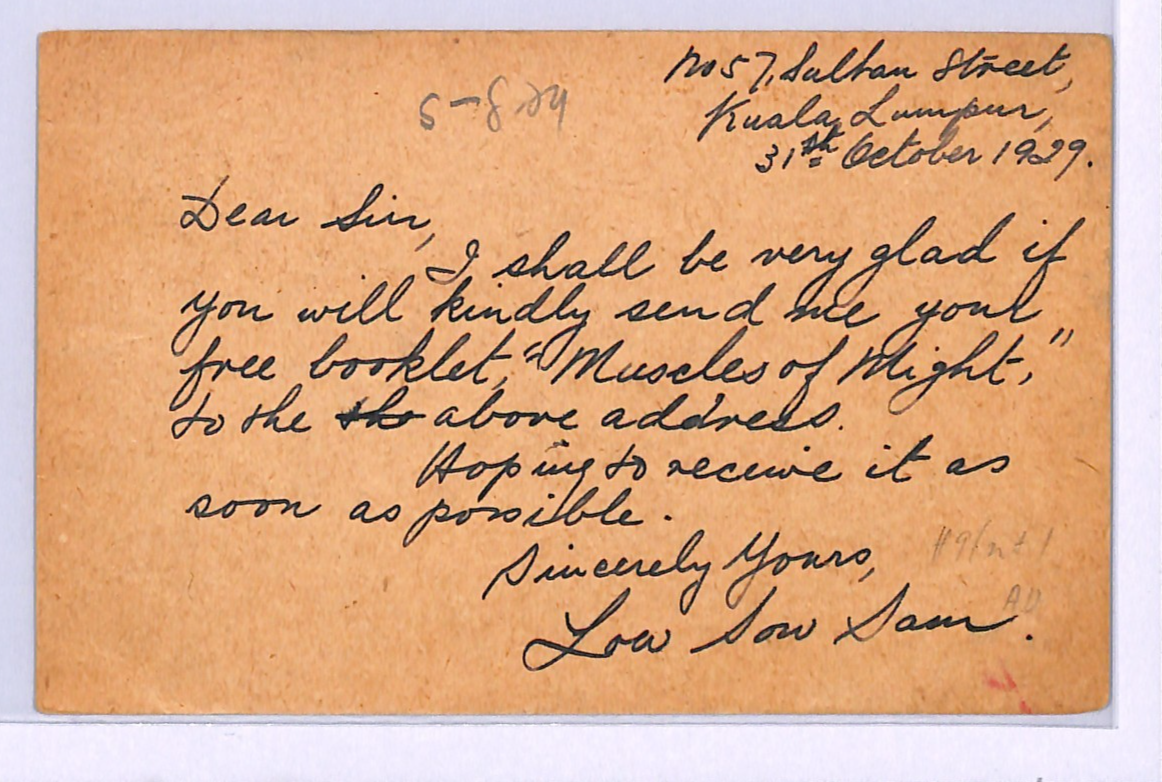 No 57, Sultan Street,
Kuala Lumpur,
31st October 1929.
Dear Sir,
I shall be very glad if
you will kindly send me your
free booklet, "Muscles of Might,"
to the the above address.
Hoping to receive it as
soon as possible.
Sincerely Yours,
Low Sow Sam.